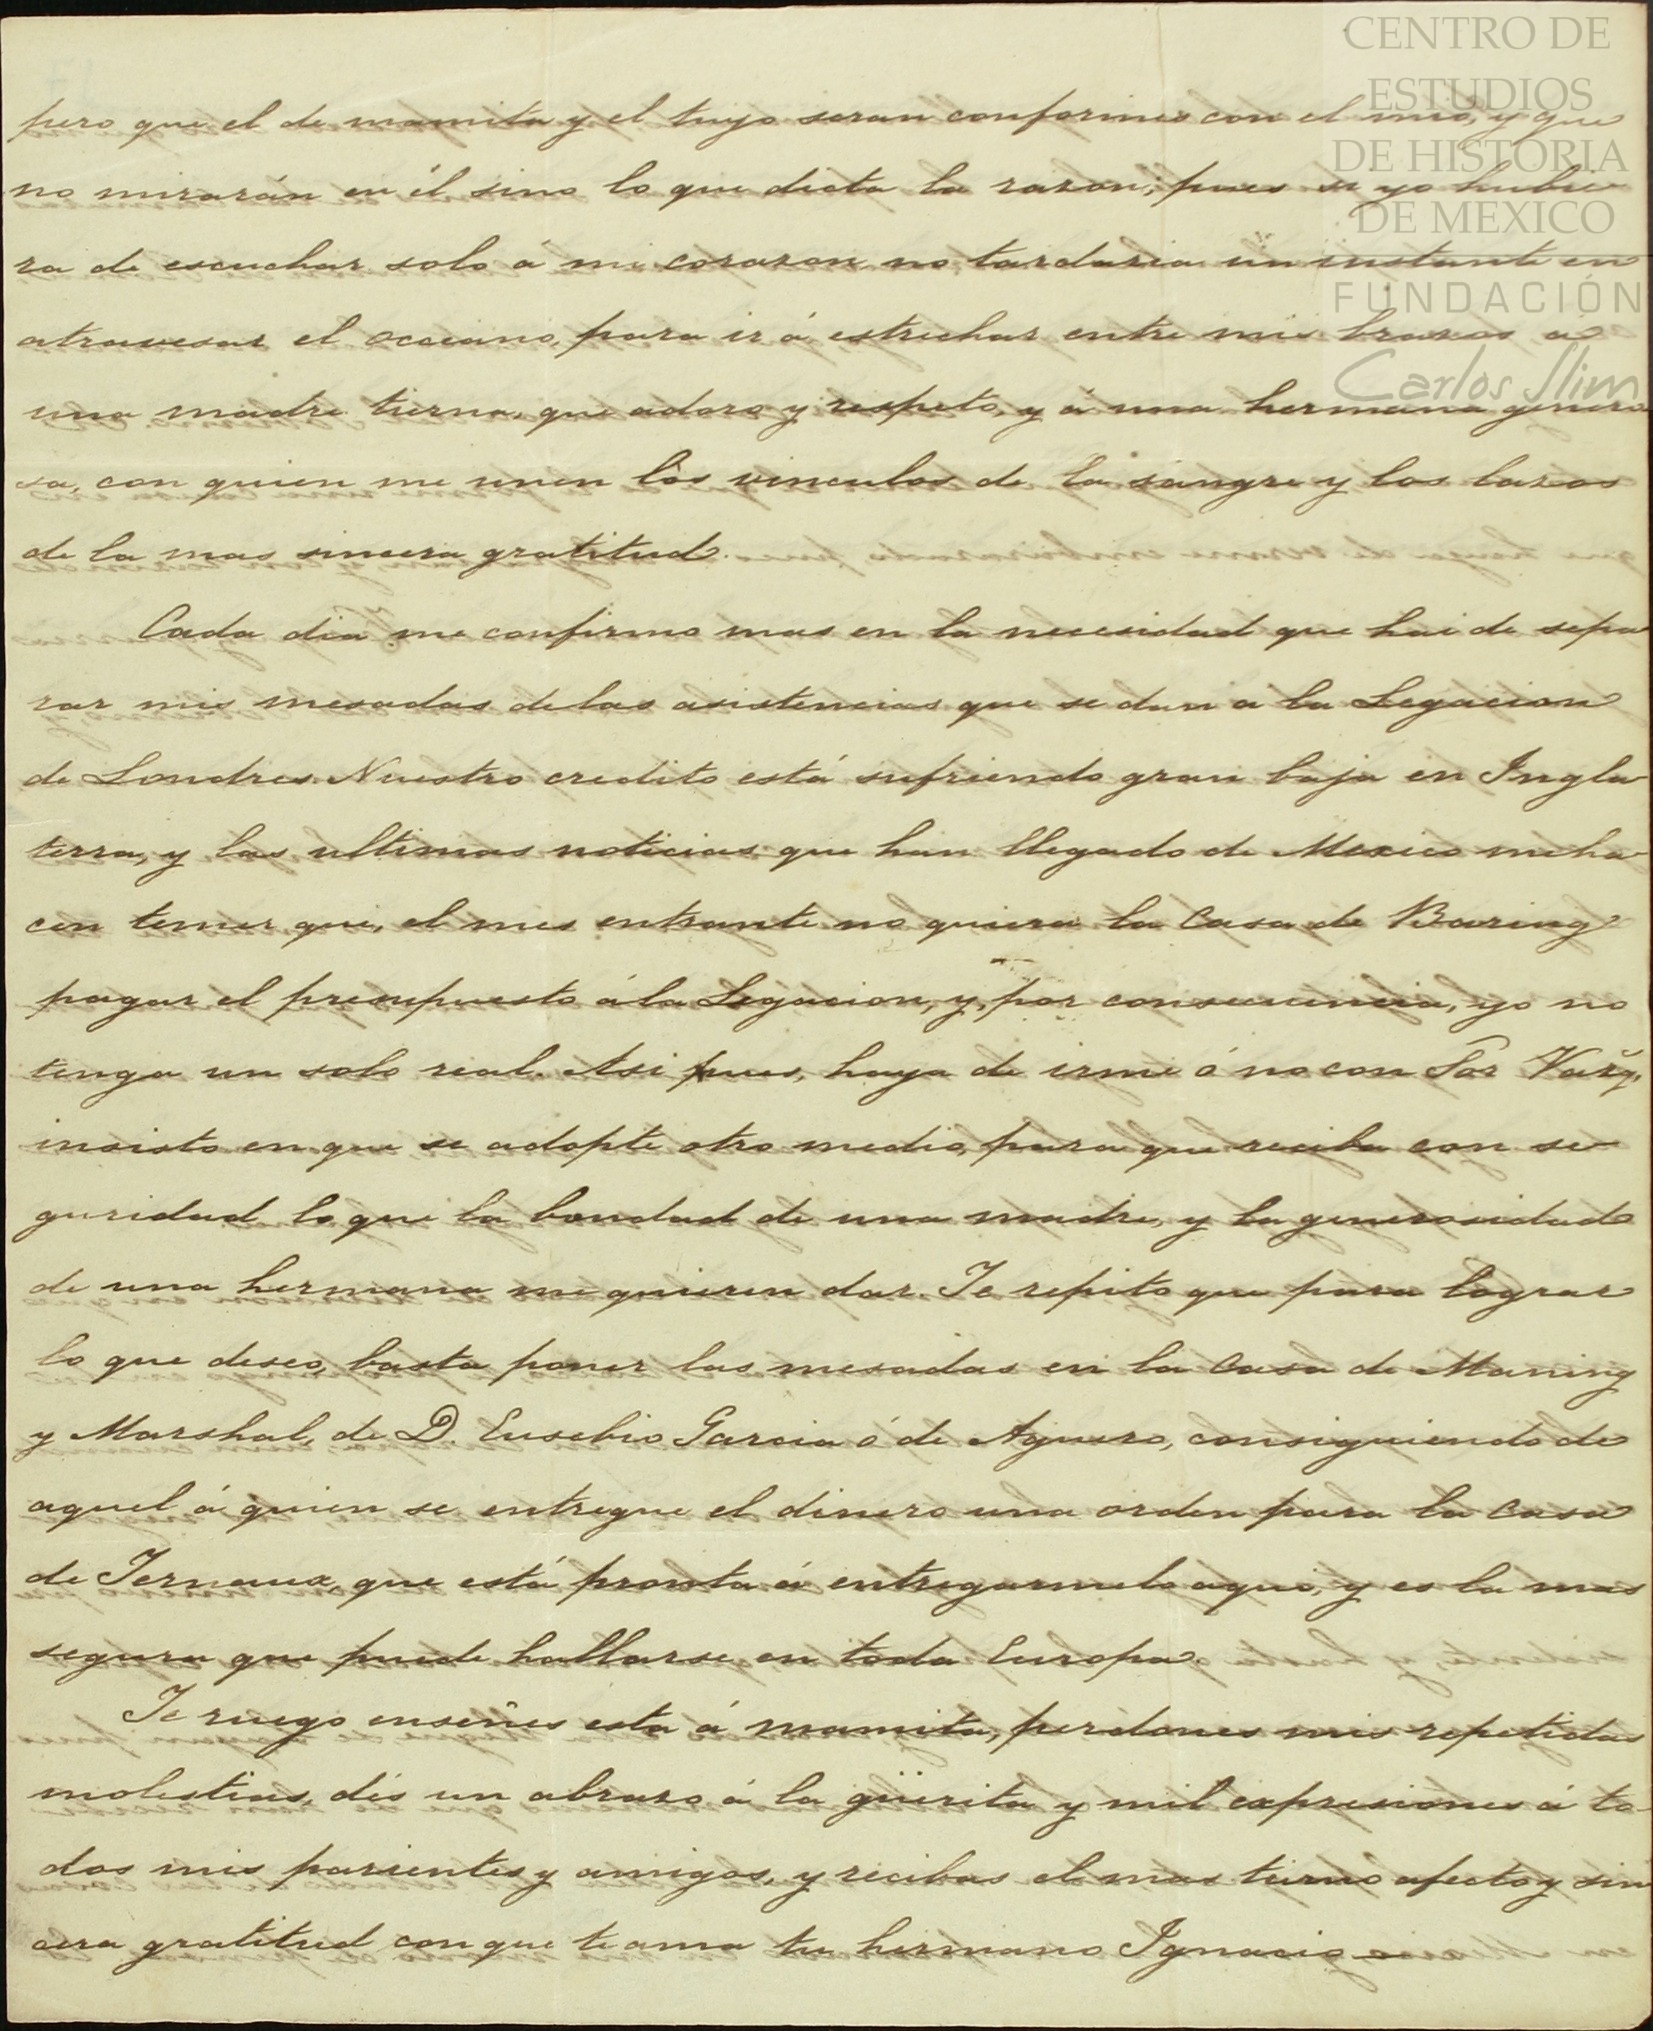 CENTRO DE
ESTUDIOS
DE HISTORIA
DE MEXICO
FUNDACIÓN
Carlos Slim
pero que el de mamita y el tuyo seran conformes con el mio, y que
no mirarán en él sino lo que dicta la razon; pues si yo hubie
ra de escuchar solo á mi corazon, no tardaria un instante en
atravesar el occeano, para ir á estrechar entre mis brazos a
una madre tierna, que adoro y respeto, y á una hermana genero
sa, con quien me unen los vinculos de la sangre y los lazos
de la mas sincera gratitud.
Cada dia me confirmo mas en la necesidad que hai de sepa
rar mis mesadas de las asistencias que se dan a la Legacion
de Londres. Nuestro credito está sufriendo gran baja en Ingla
terra, y las ultimas noticias que han llegado de Mexico me ha
cen temer que, el mes entrante no quiera la Casa de Baring
pagar el presupuesto á la Legacion, y, por consecuencia, yo no
tenga un solo real. Asi pues, haya de irme ó no con Sor Vazq.
insisto en que se adopte otro medio, para que reciba con se
guridad lo que la bondad de una madre, y la generosidad
de una hermana me quieren dar. Te repito que para lograr
lo que deseo, basta poner las mesadas en la Casa de Maning
y Marshal, de D. Eusebio Garcia ó de Aguero, consiguiendo de
aquel á quien se entregue el dinero una orden para la Casa
de Ternaux, que está pronta á entregarmelo aqui, y es la mas
segura que puede hallarse en toda Europa.
Te ruego enseñes esta á mamita, perdones mis repetidas
molestias, dés un abrazo á la güerita y mil expresiones á to
dos mis parientes y amigos, y recibas el mas tierno afecto y sin
cera gratitud con que te ama tu hermano Ignacio